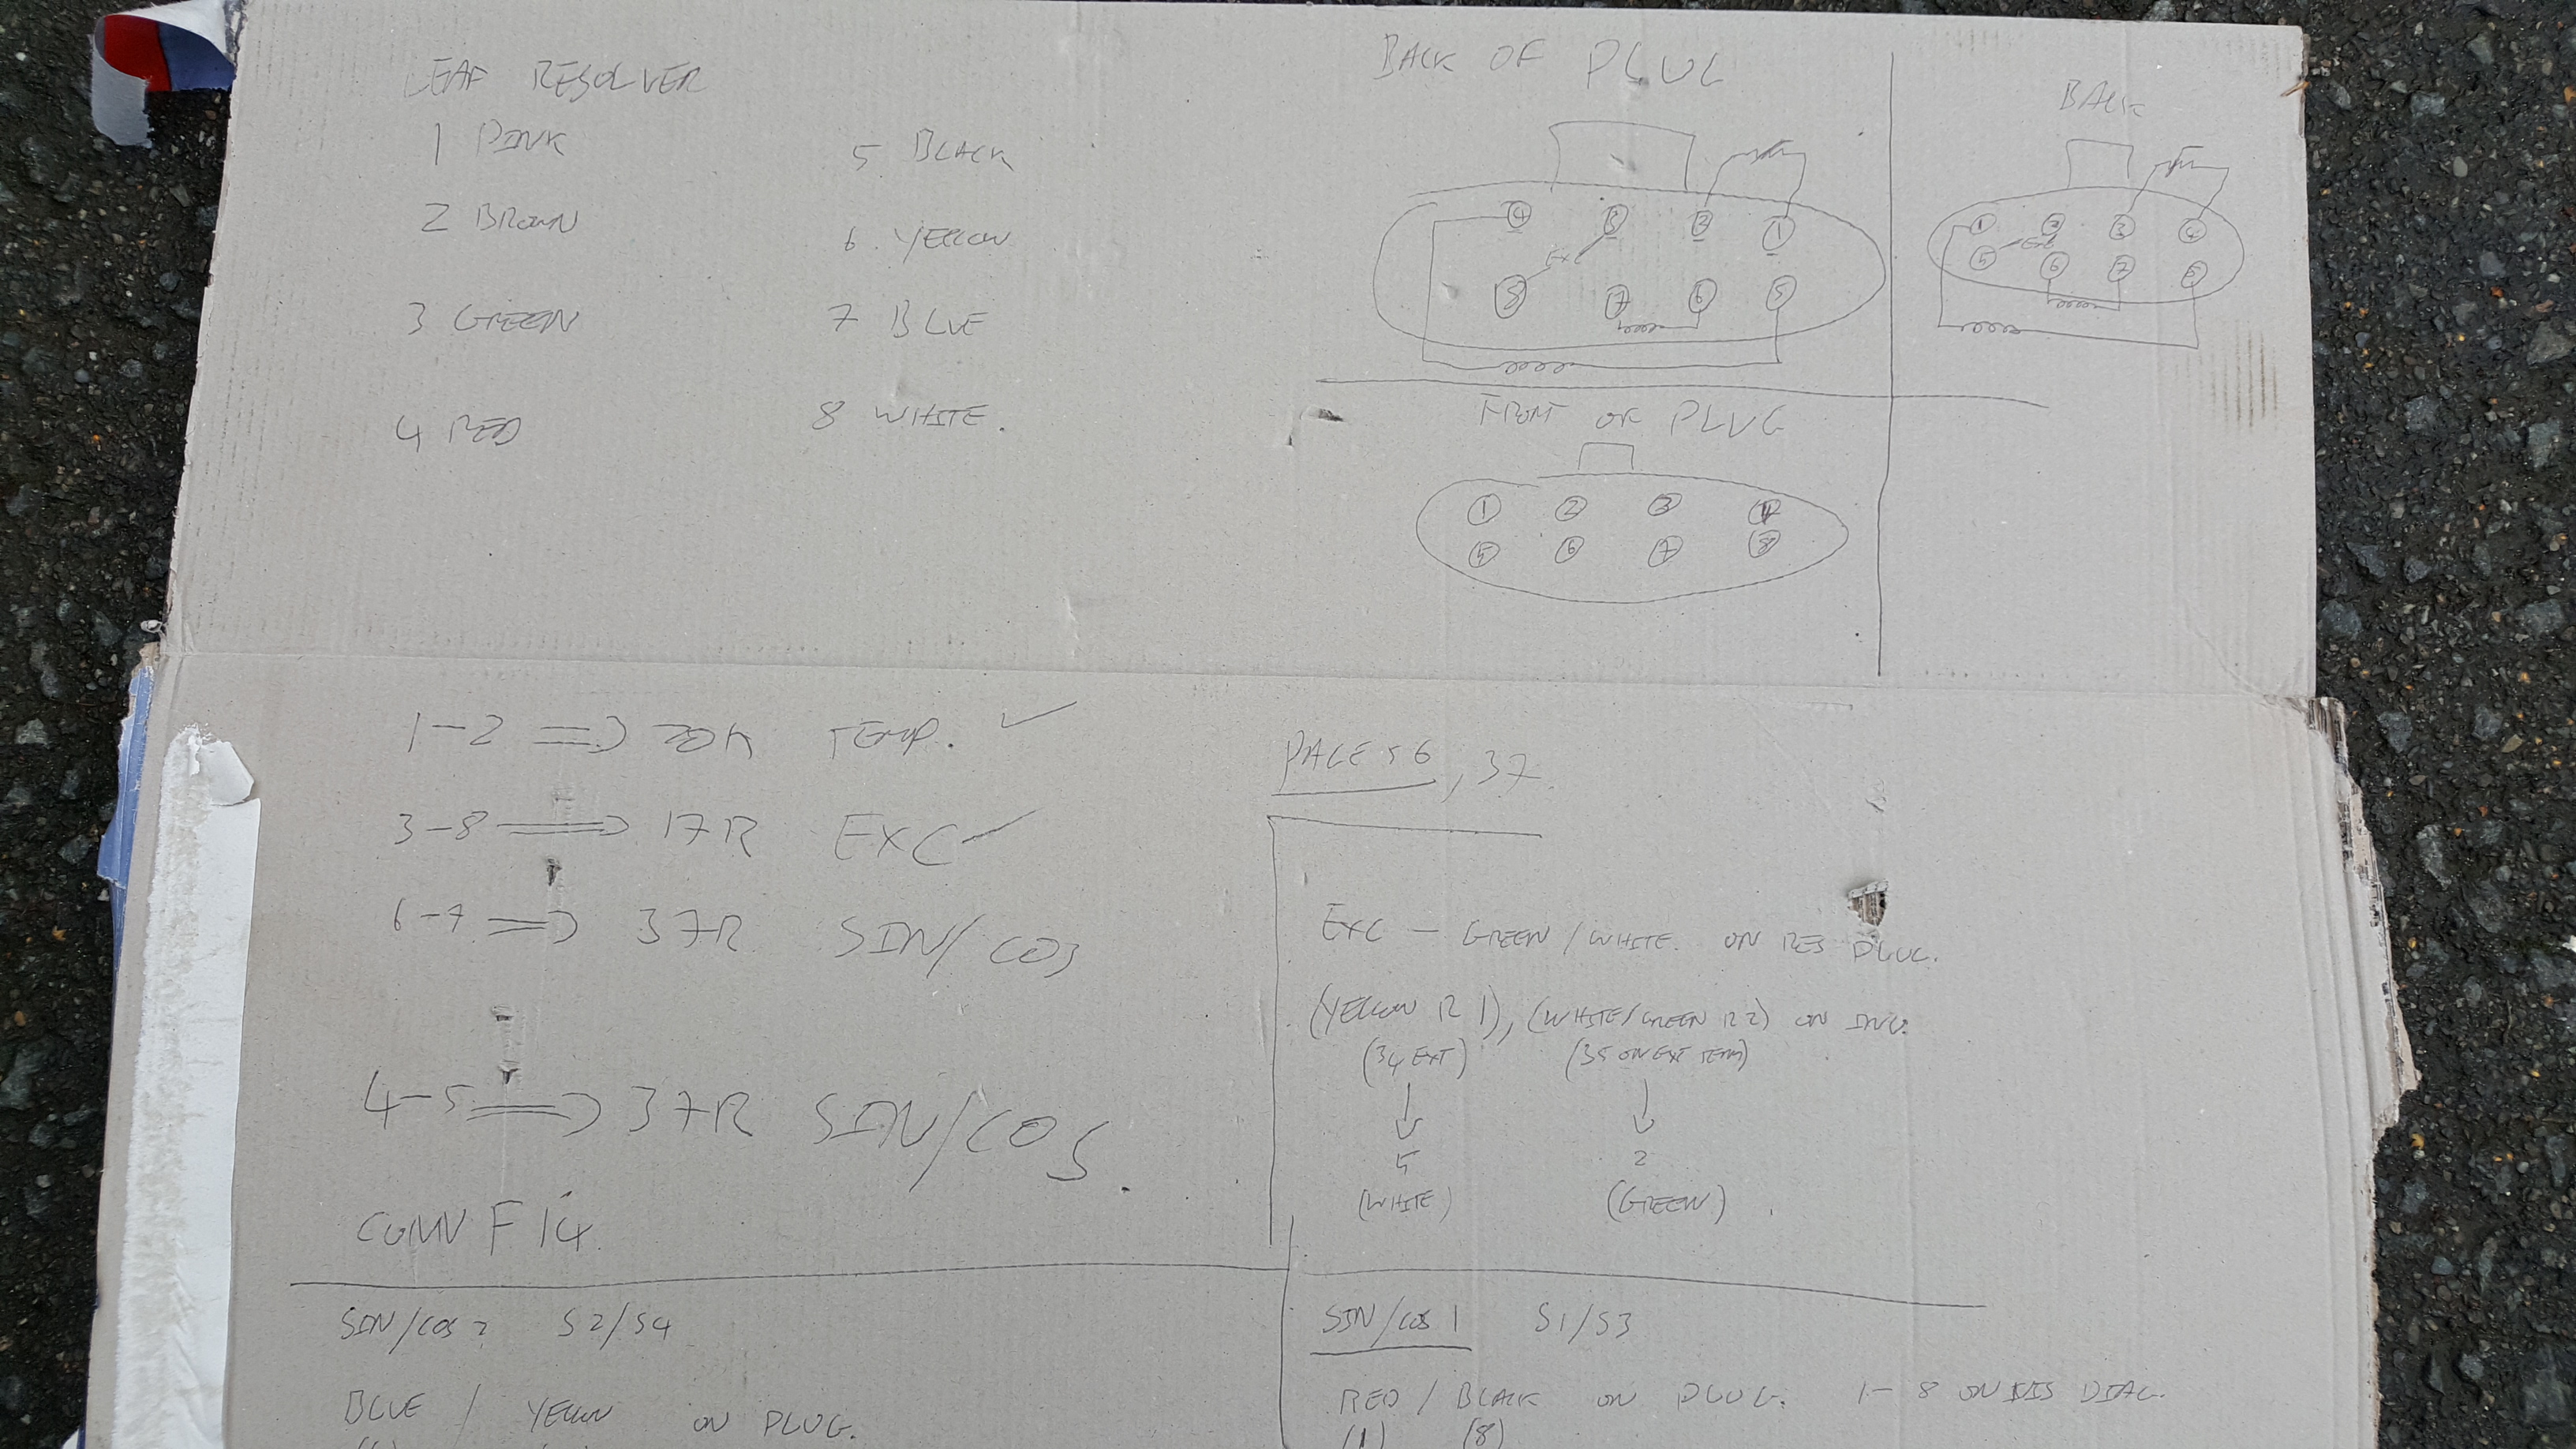 LEAF RESOLVER
1 PINK
2 BROWN
3 GREEN
4 RED
5 BLACK
6. YELLOW
7 BLUE
8 WHITE.
BACK OF PLUG
4 3 2 1
EXC
8 7 6 5
BACK
1 2 3 4
EXC
5 6 7
FRONT OF PLUG
1 2 3 4
5 6 7 8
1-2 => 20K TEMP. ✓
3-8 => 17R EXC ✓
6-7 => 37R SIN/COS
4-5 => 37R SIN/COS.
CONN F14.
PAGE 56, 37.
EXC - GREEN/WHITE. ON RES PLUG.
(YELLOW R1), (WHITE/GREEN R2) ON INV.
(34 EXT) (35 ON EXT TERM)
↓ ↓
5 2
(WHITE) (GREEN).
SIN/COS 2 S2/S4
BLUE / YELLOW ON PLUG.
SIN/COS 1 S1/S3
RED / BLACK ON PLUG. 1-8 ON NIS DIAG.
(1) (8)